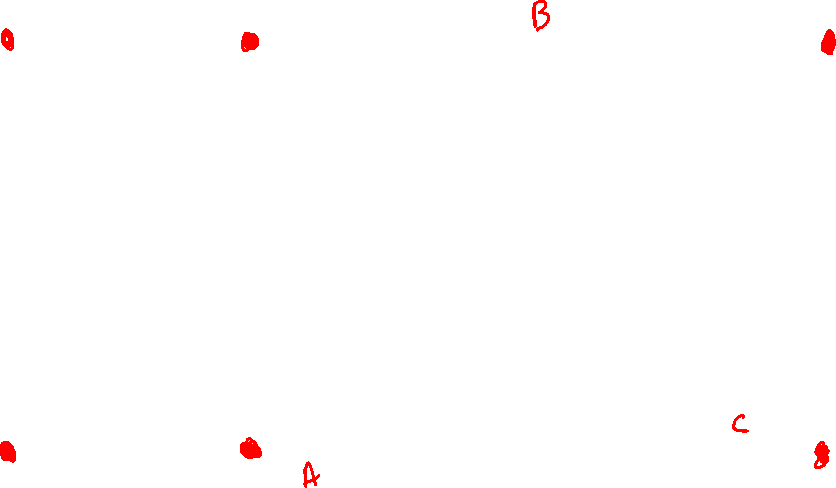 B
C
A